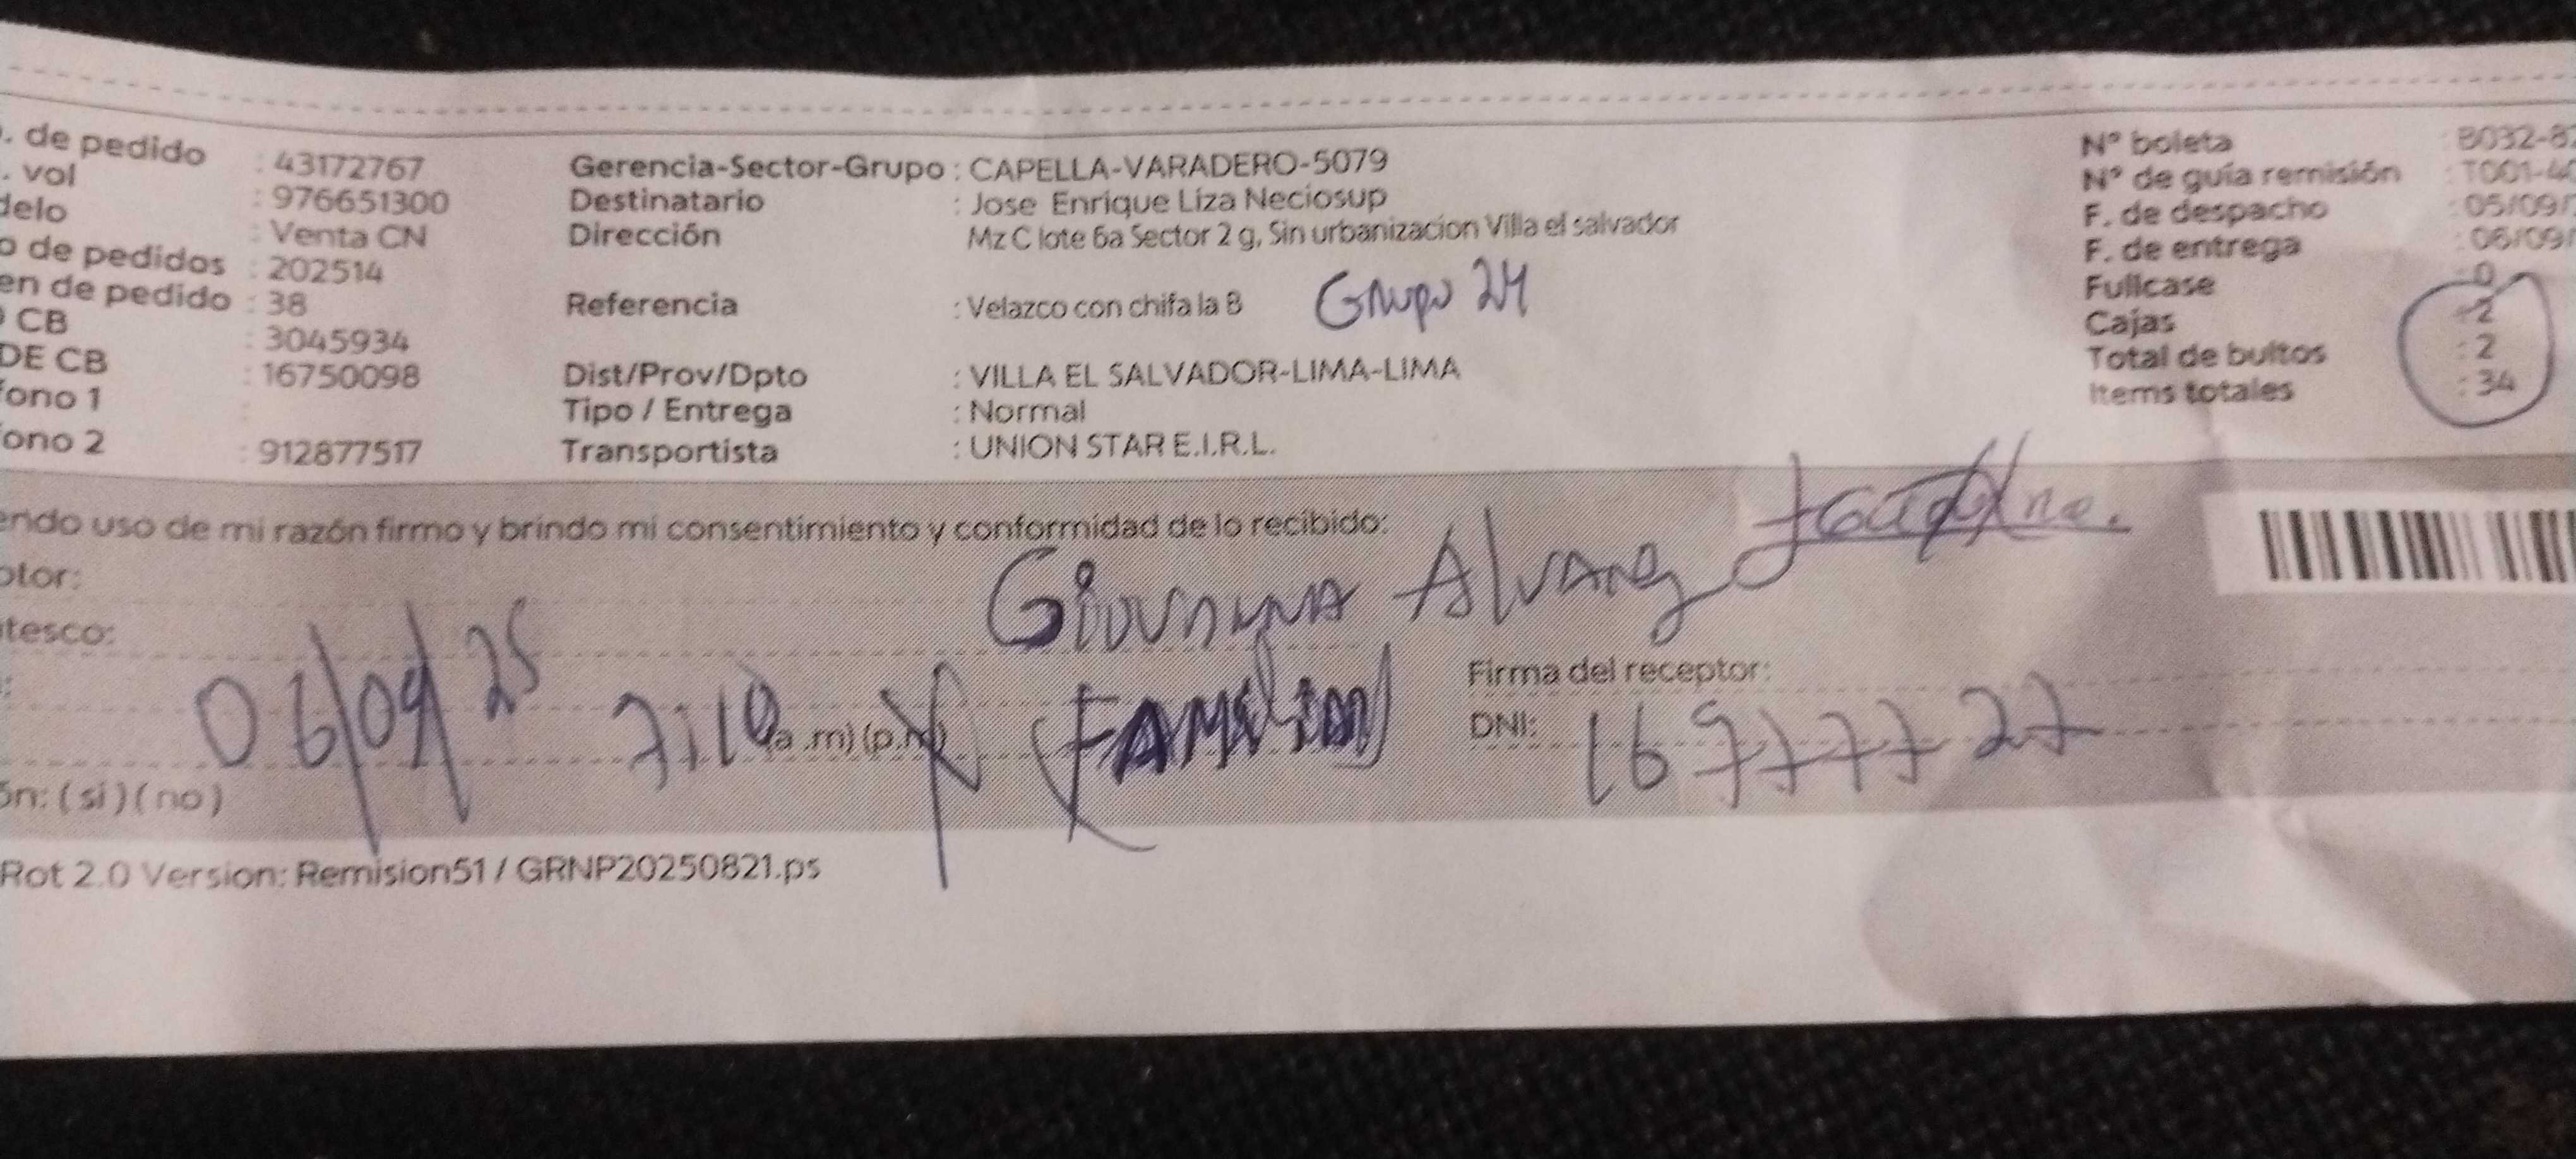 . de pedido : 43172767 Gerencia-Sector-Grupo : CAPELLA-VARADERO-5079 N° boleta : B032-8
. vol : 976651300 Destinatario : Jose Enrique Liza Neciosup N° de guía remisión : T001-4
delo : Venta CN Dirección Mz C lote 6a Sector 2 g, Sin urbanizacion Villa el salvador F. de despacho : 05/09/
o de pedidos : 202514 F. de entrega : 06/09/
en de pedido : 38 Referencia : Velazco con chifa la B Grupo 24 Fullcase : 0
CB : 3045934 Cajas : 2
DE CB : 16750098 Dist/Prov/Dpto : VILLA EL SALVADOR-LIMA-LIMA Total de bultos : 2
fono 1 : Tipo / Entrega : Normal Items totales : 34
fono 2 : 912877517 Transportista : UNION STAR E.I.R.L.
endo uso de mi razón firmo y brindo mi consentimiento y conformidad de lo recibido:
ptor: Giovanna Alvarez
tesco:
: 06/09/25 7:10 (a .m) (p.m) (FAMILIAR) Firma del receptor:
DNI: 16977727
ón: ( si ) ( no )
Rot 2.0 Version: Remision51 / GRNP20250821.ps